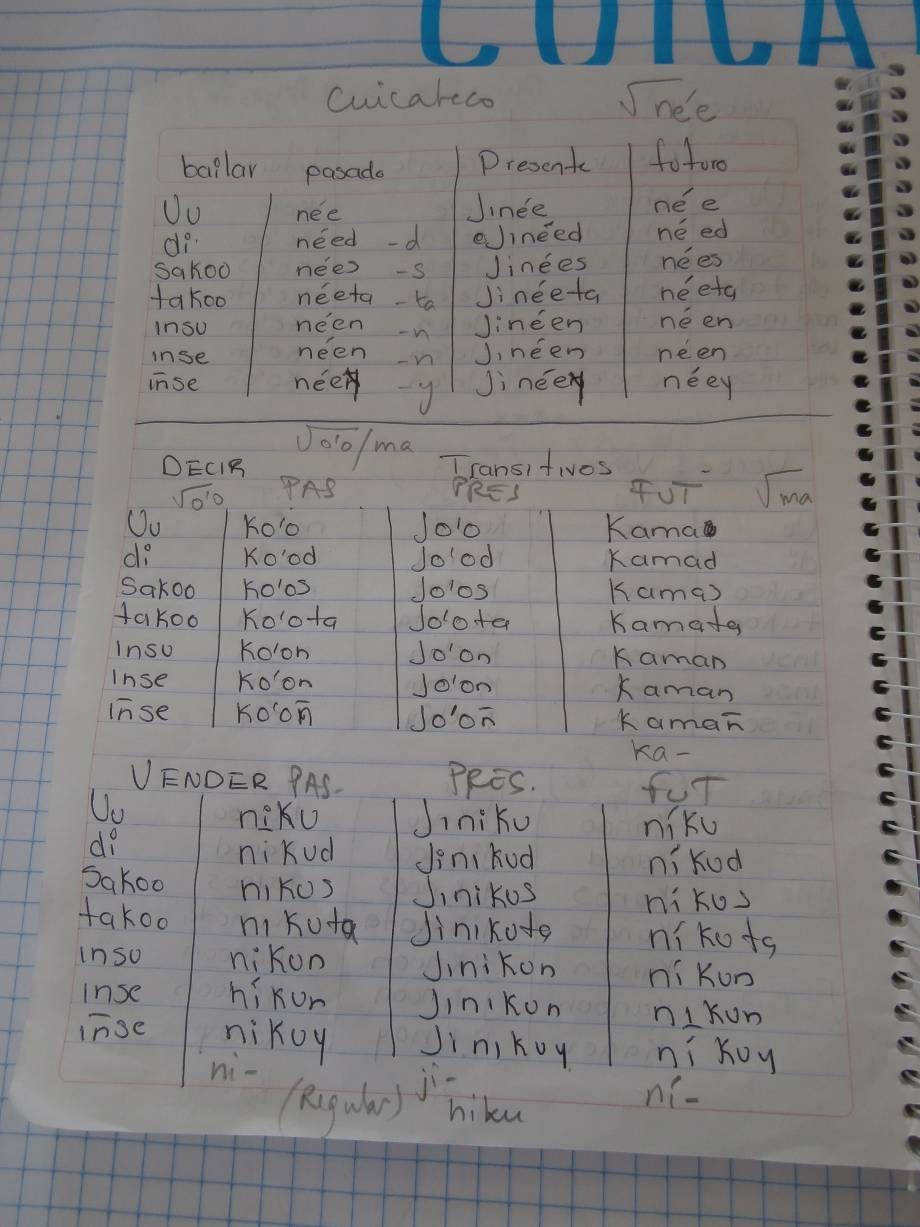 CUICA
Cuicateco √née
bailar pasado Presente futuro
Uu née Jinée née
di néed -d Jinéed néed
sakoo nées -s Jinées nées
takoo néeta -ta Jinéeta néeta
insu néen -n Jinéen néen
inse néen -n Jinéen néen
iñse néey -y Jinéey néey
√o'o/ma
DECIR Transitivos
√o'o PAS PRES FUT √ma
Uu ko'o Jo'o kama
di ko'od Jo'od kamad
sakoo ko'os Jo'os kamas
takoo ko'ota Jo'ota kamata
insu ko'on Jo'on kaman
inse ko'on Jo'on kaman
iñse ko'oñ Jo'oñ kamañ
ka-
VENDER PAS. PRES. FUT
Uu niku Jiniku níku
di nikud Jinikud níkud
sakoo nikus Jinikus níkus
takoo nikuta Jinikuta níkuta
insu nikun Jinikun níkun
inse nikun Jinikun nikun
iñse nikuy Jinikuy níkuy
ni- ji- ní-
(Regular) niku